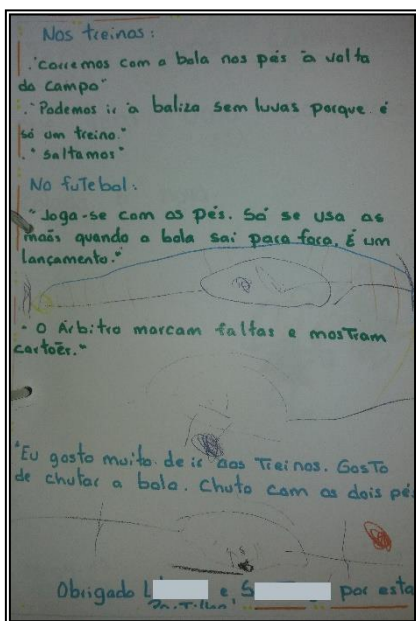 Nos treinos:
."Corremos com a bola nos pés à volta
do campo"
."Podemos ir à baliza sem luvas porque é
só um treino."
."Saltamos"
No fuTebol:
"Joga-se com os pés. Só se usa as
maõs quando a bola sai para fora. É um
lançamento."
- O Árbitro marcam faltas e mosTram
cartões."
"Eu gosto muito de ir aos Treinos. GosTo
de chutar a bola. Chuto com os dois pé
Obrigado L e S por esta
ParTilha!